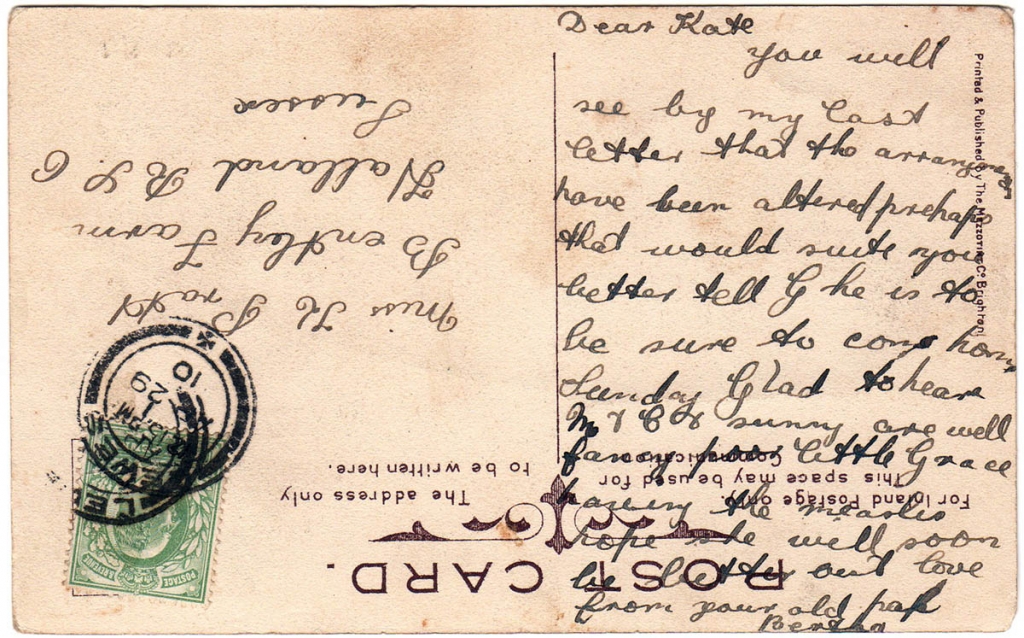 Dear Kate
you will
see by my last
letter that the arrangments
have been altered prehaps
that would suite you
better tell G he is to
be sure to come home
Sunday Glad to hear
M & C & sunny are well
fancy poor little Grace
having the measles
hope she will soon
be better out love
from your old pal
Bertha
POST CARD.
For Inland Postage only.
This space may be used for
Communication
The address only
to be written here.
Miss K Pratt
Bentley Farm
Halland R.S.O
Sussex
Printed & Published by The Mezzotint Co Brighton
LEWES
29
10
POSTAGE
& REVENUE